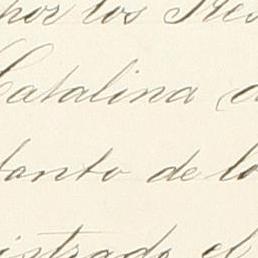 por los
Catalina
tanto de lo
istrado el